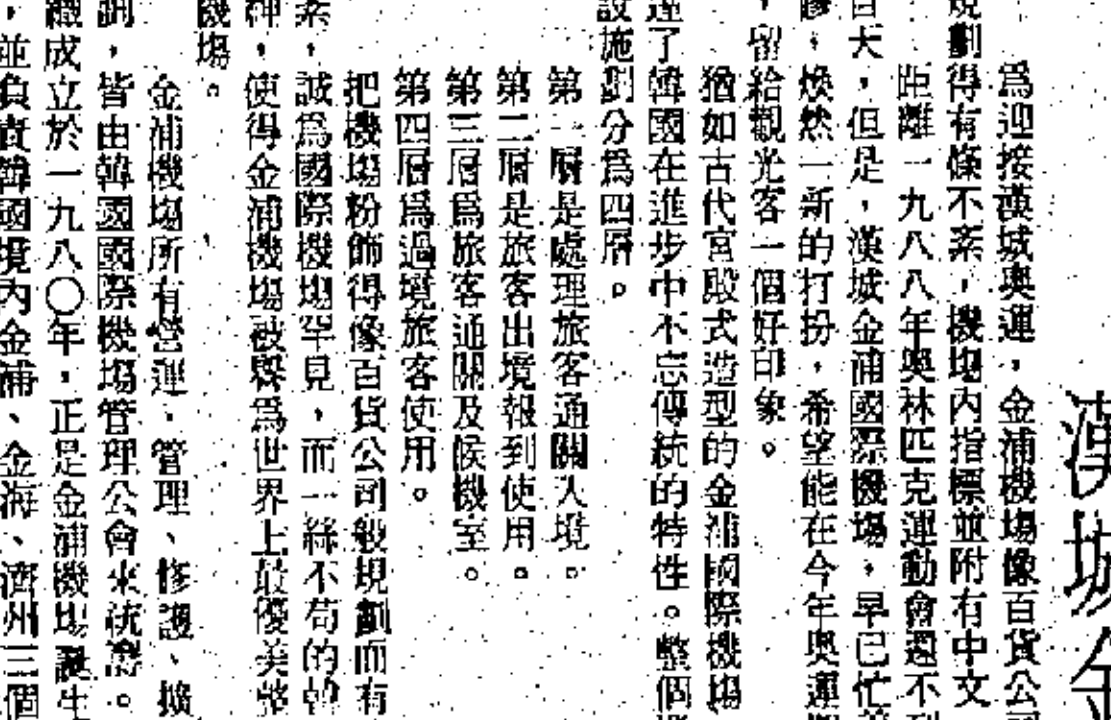 漢城金
為迎接漢城奧運，金浦機場像百貨公司
規劃得有條不紊，機場內指標並附有中文
距離一九八八年奧林匹克運動會還不到
百天，但是，漢城金浦國際機場，早已忙
，煥然一新的打扮，希望能在今年奧運
，留給觀光客一個好印象。
猶如古代宮殿式造型的金浦國際機場
達了韓國在進步中不忘傳統的特性。整個
設施劃分為四層。
第一層是處理旅客通關入境。
第二層是旅客出境報到使用。
第三層為旅客通關及候機室。
第四層為過境旅客使用。
把機場粉飾得像百貨公司般規劃而有
紊，誠為國際機場罕見，而一絲不苟的韓
神，使得金浦機場被譽為世界上最優美整
機場。
金浦機場所有營運、管理、修護、擴
訓，皆由韓國國際機場管理公會來統籌。
織成立於一九八〇年，正是金浦機場誕生
，並負責韓國境內金浦、金海、濟州三個